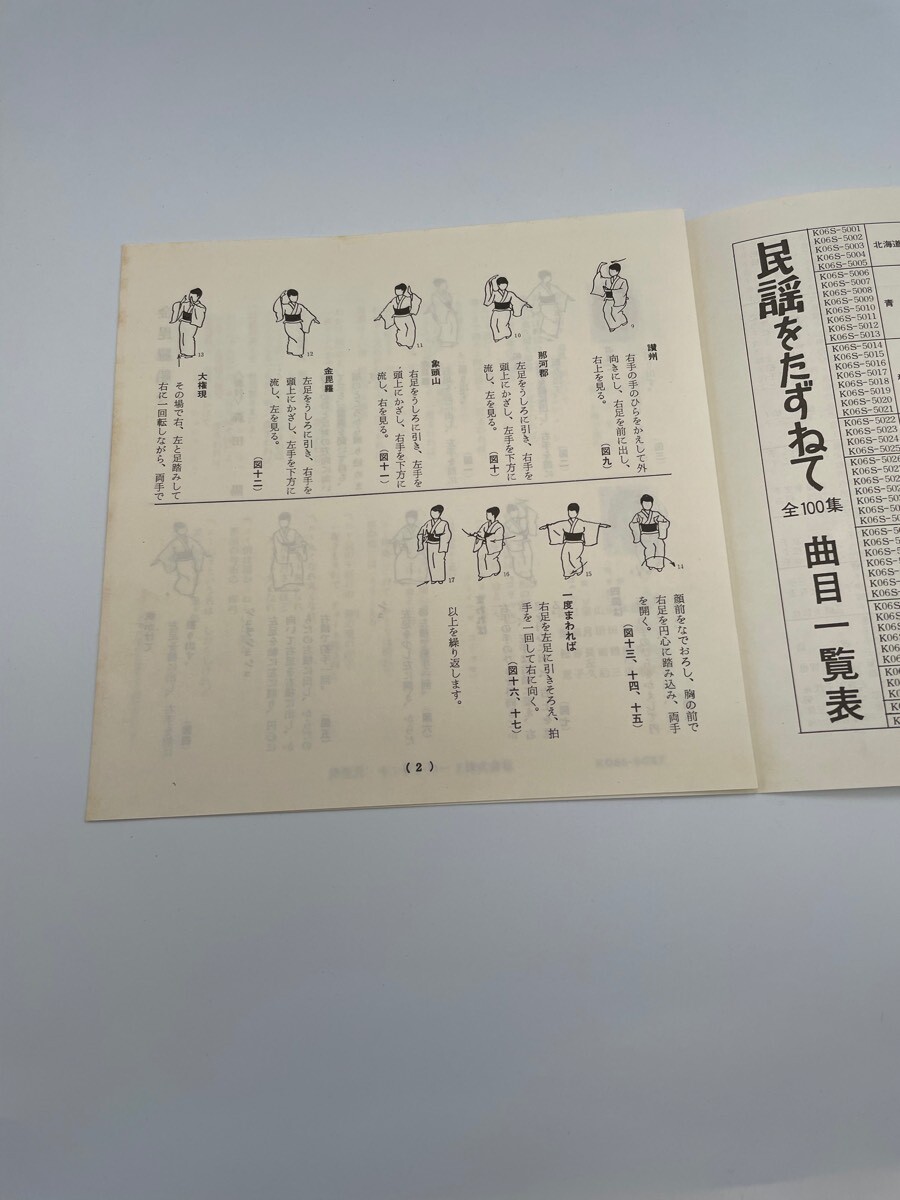 讃州
右手の手のひらをかえして外
向きにし、右足を前に出し、
右上を見る。
(図九)
9
那河郡
左足をうしろに引き、右手を
頭上にかざし、左手を下方に
流し、左を見る。
(図十)
10
象頭山
右足をうしろに引き、左手を
頭上にかざし、右手を下方に
流し、右を見る。
(図十一)
11
金毘羅
左足をうしろに引き、右手を
頭上にかざし、左手を下方に
流し、左を見る。
(図十二)
12
大権現
その場で右、左と足踏みして
右に一回転しながら、両手で
13
顔前をなでおろし、胸の前で
右足を円心に踏み込み、両手
を開く。
(図十三、十四、十五)
14
15
一度まわれば
右足を左足に引きそろえ、拍
手を一回して右に向く。
(図十六、十七)
16
17
以上を繰り返します。
(2)
民謡をたずねて
全100集
曲目一覧表
K06S-5001
K06S-5002
K06S-5003
K06S-5004
K06S-5005
北海道
K06S-5006
K06S-5007
K06S-5008
K06S-5009
K06S-5010
K06S-5011
K06S-5012
K06S-5013
青
K06S-5014
K06S-5015
K06S-5016
K06S-5017
K06S-5018
K06S-5019
K06S-5020
K06S-5021
K06S-5022
K06S-5023
K06S-5024
K06S-5025